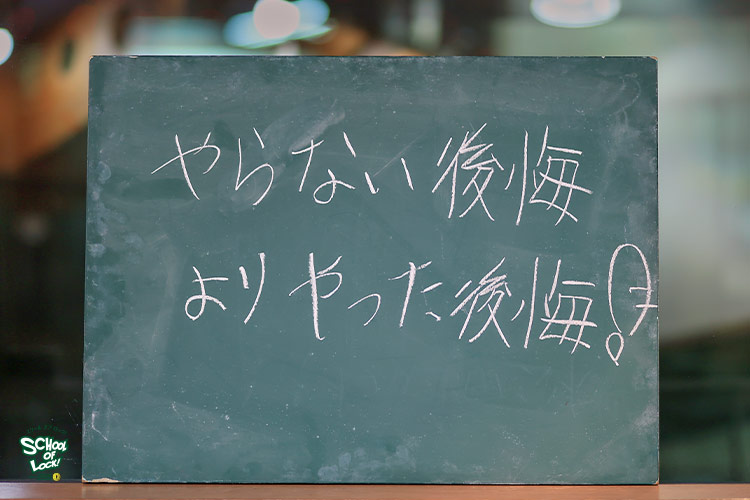 やらない後悔
よりやった後悔!
SCHOOL
OF
LOCK!